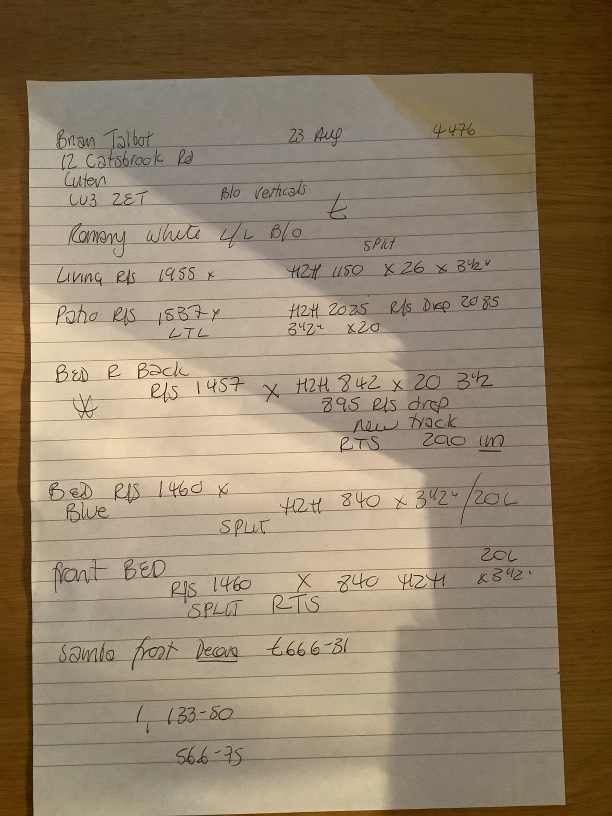 Brian Talbot 23 Aug 4476
12 Catsbrook Rd
Luton
LU3 2ET
B/o Verticals
t
Romany White L/L B/o
SPLIT
Living R/S 1955 x H2H 1150 x 26 x 3 1/2"
Patio R/S 1,537 x H2H 2035 R/S Drop 2085
LTL 3 1/2" x 20
BED R Back
R/S 1457 x H2H 842 x 20 3 1/2
895 R/S drop
new track
RTS
BED R/S 1460 x H2H 840 x 3 1/2"/20L
Blue
SPLIT
front BED 20L
R/S 1460 x 840 H2H x 3 1/2"
SPLIT RTS
Samba frost £666-31
1,133-50
566-75